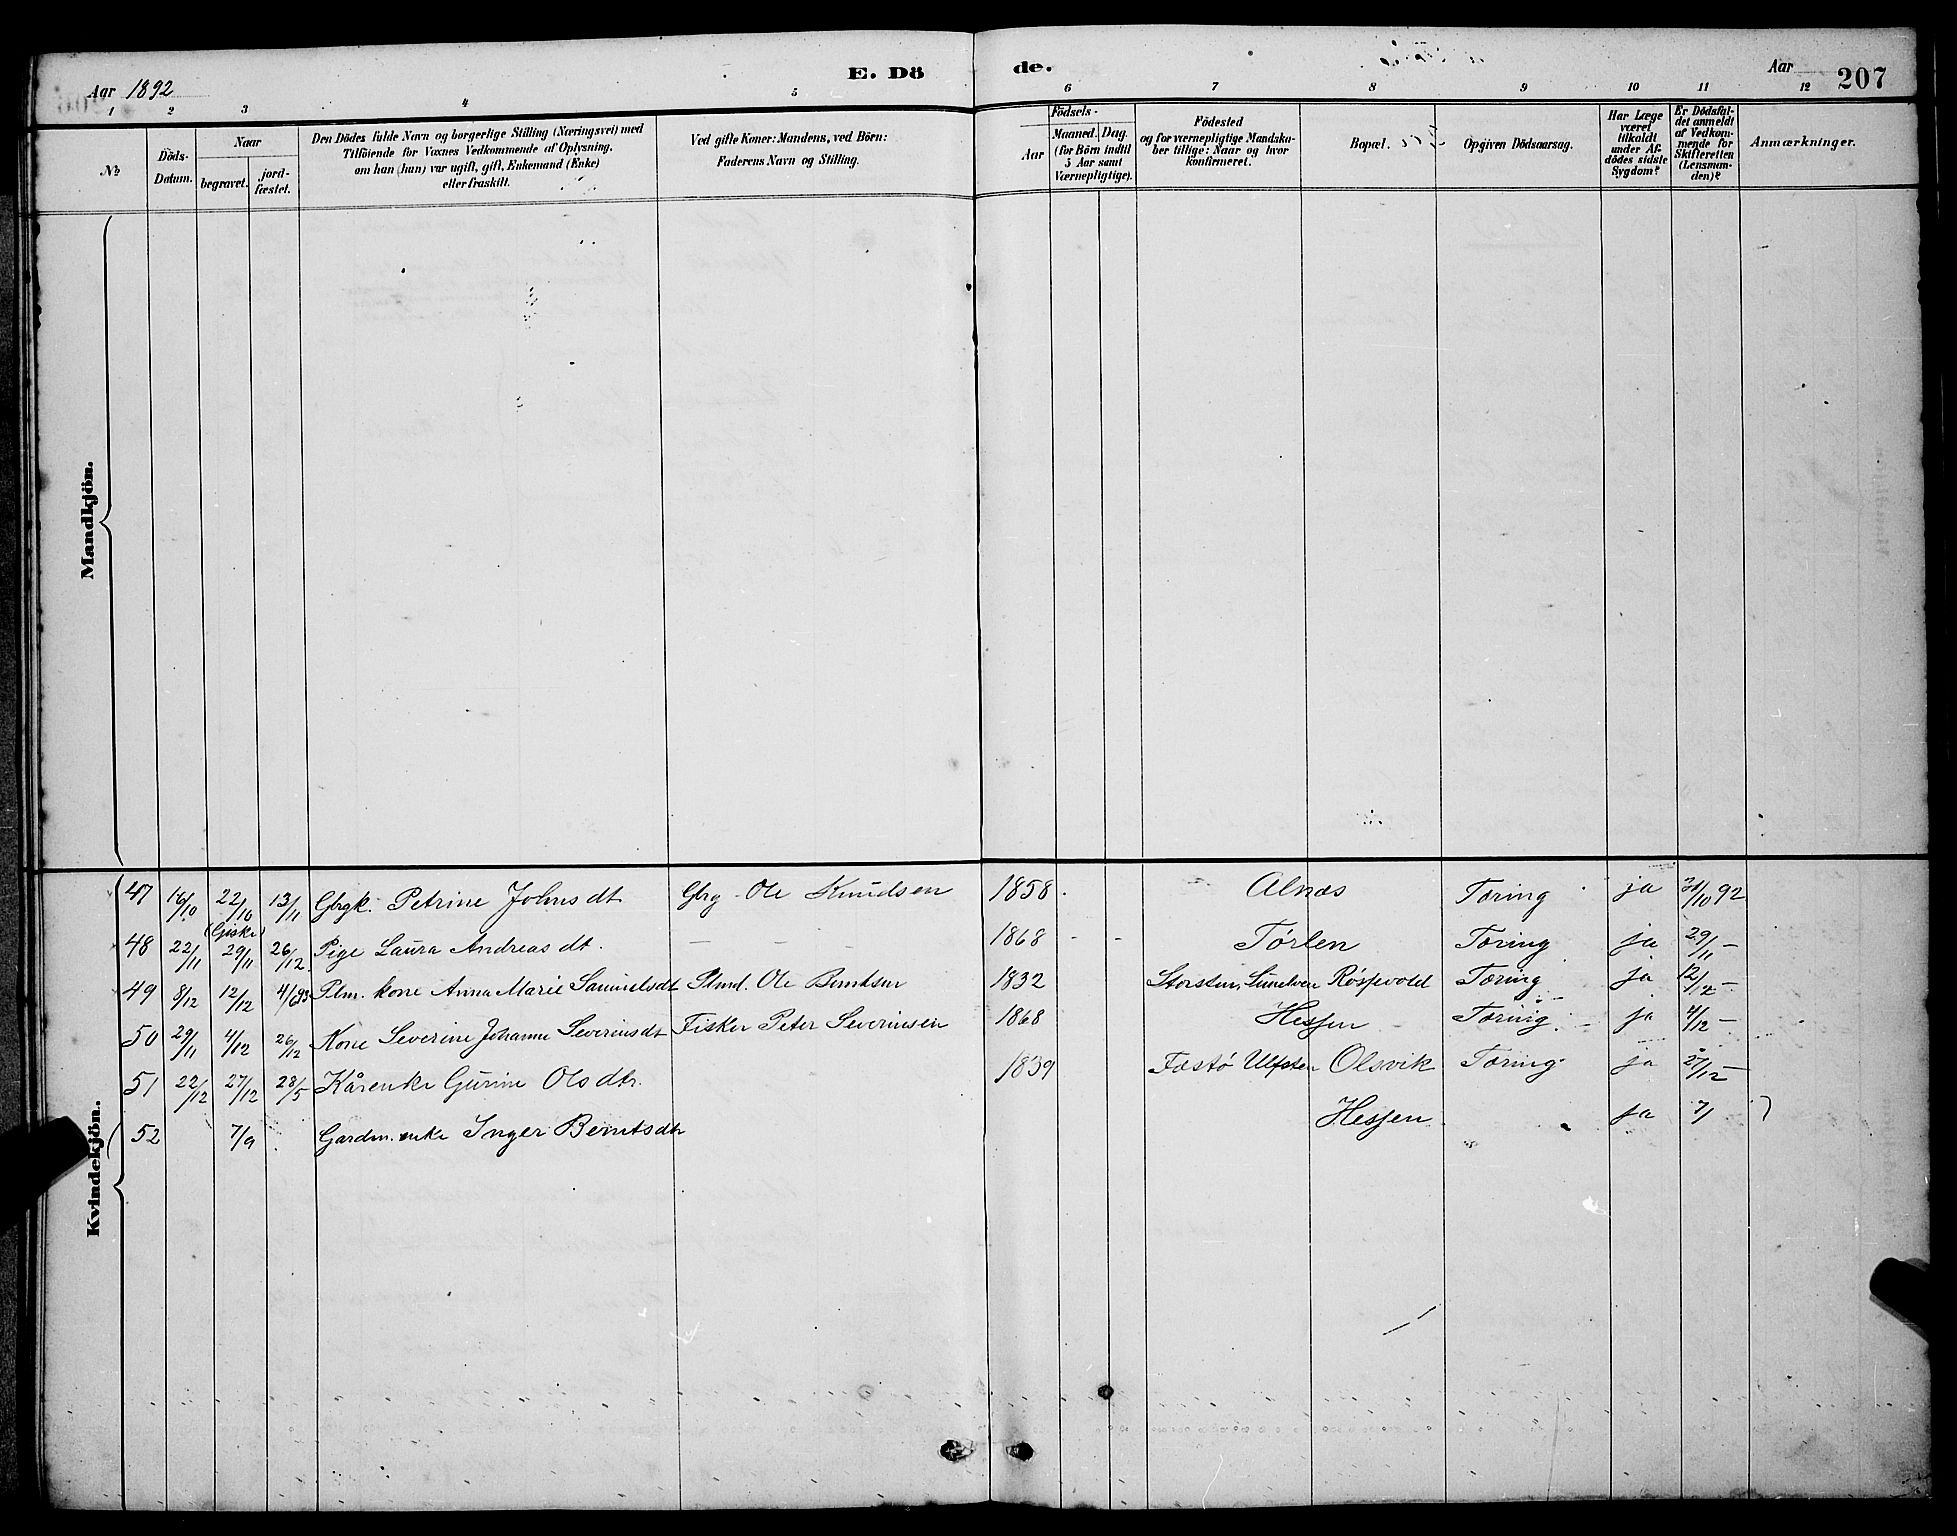 Aar 1892
E. Dö
de.
Aar
207
1 2 3 4 5 6 7 8 9 10 11 12
No
Döds-
Datum.
Naar
begravet.
jord-
fæstet.
Den Dödes fulde Navn og borgerlige Stilling (Næringsvei) med
Tilföiende for Voxnes Vedkommende af Oplysning,
om han (hun) var ugift, gift, Enkemand (Enke)
eller fraskilt.
Ved gifte Koner: Mandens, ved Börn:
Faderens Navn og Stilling.
Födsels-
Aar
Maaned. Dag.
(for Börn indtil
5 Aar samt
Værnepligtige).
Födested
og for værnepligtige Mandska-
ber tillige: Naar og hvor
konfirmeret.
Bopæl.
Opgiven Dödsaarsag.
Har Læge
været
tilkaldt
under Af-
dödes sidste
Sygdom?
Er Dödsfal-
det anmeldt
af Vedkom-
mende for
Skifteretten
(Lensman-
den)?
Anmærkninger.
Mandkjön.
Kvindekjön.
47 16/10 22/10 13/11 Gbrgk. Petrine Johnsdt Gbrg. Ole Knudsen 1858. Alnæs Tæring ja 31/10 92
(Giske)
48 22/11 29/11 26/12 Pige Laura Andreasdt. — — — 1868 - - Törlen Tæring ja 29/11 —
49 8/12 12/12 4/6 93 Plm. kone Anna Marie Samuelsdt Plmd. Ole Berntsen 1832 Storsten, Sunelven Röspevold Tæring ja 12/12 —
50 29/11 4/12 26/12 Kone Severine Johanne Severinsdt Fisker Peter Severinsen 1868 Hessen Tæring. — ja 4/12 —
51 22/12 27/12 28/5 Kårenke Gurine Olsdtr. 1839 Fastö Ulfsten Olsvik Tæring ja 27/12 —
52 7/9 Gardm. enke Inger Berntsdtr Hessen. ja 7/